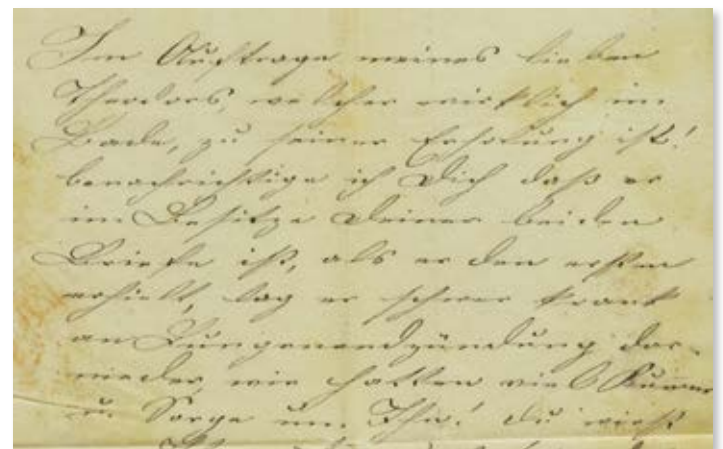 Im Auftrage meines lieben
Theodors, welcher wirklich im
Bade, zu seiner Erholung ist!
benachrichtige ich Dich daß er
im Besitze Deiner beiden
Briefe ist, als er den ersten
erhielt, lag er schwer krank
an Lungenendzündung dar-
nieder, wir hatten viel Kummer
u. Sorge um Ihn! du wirst